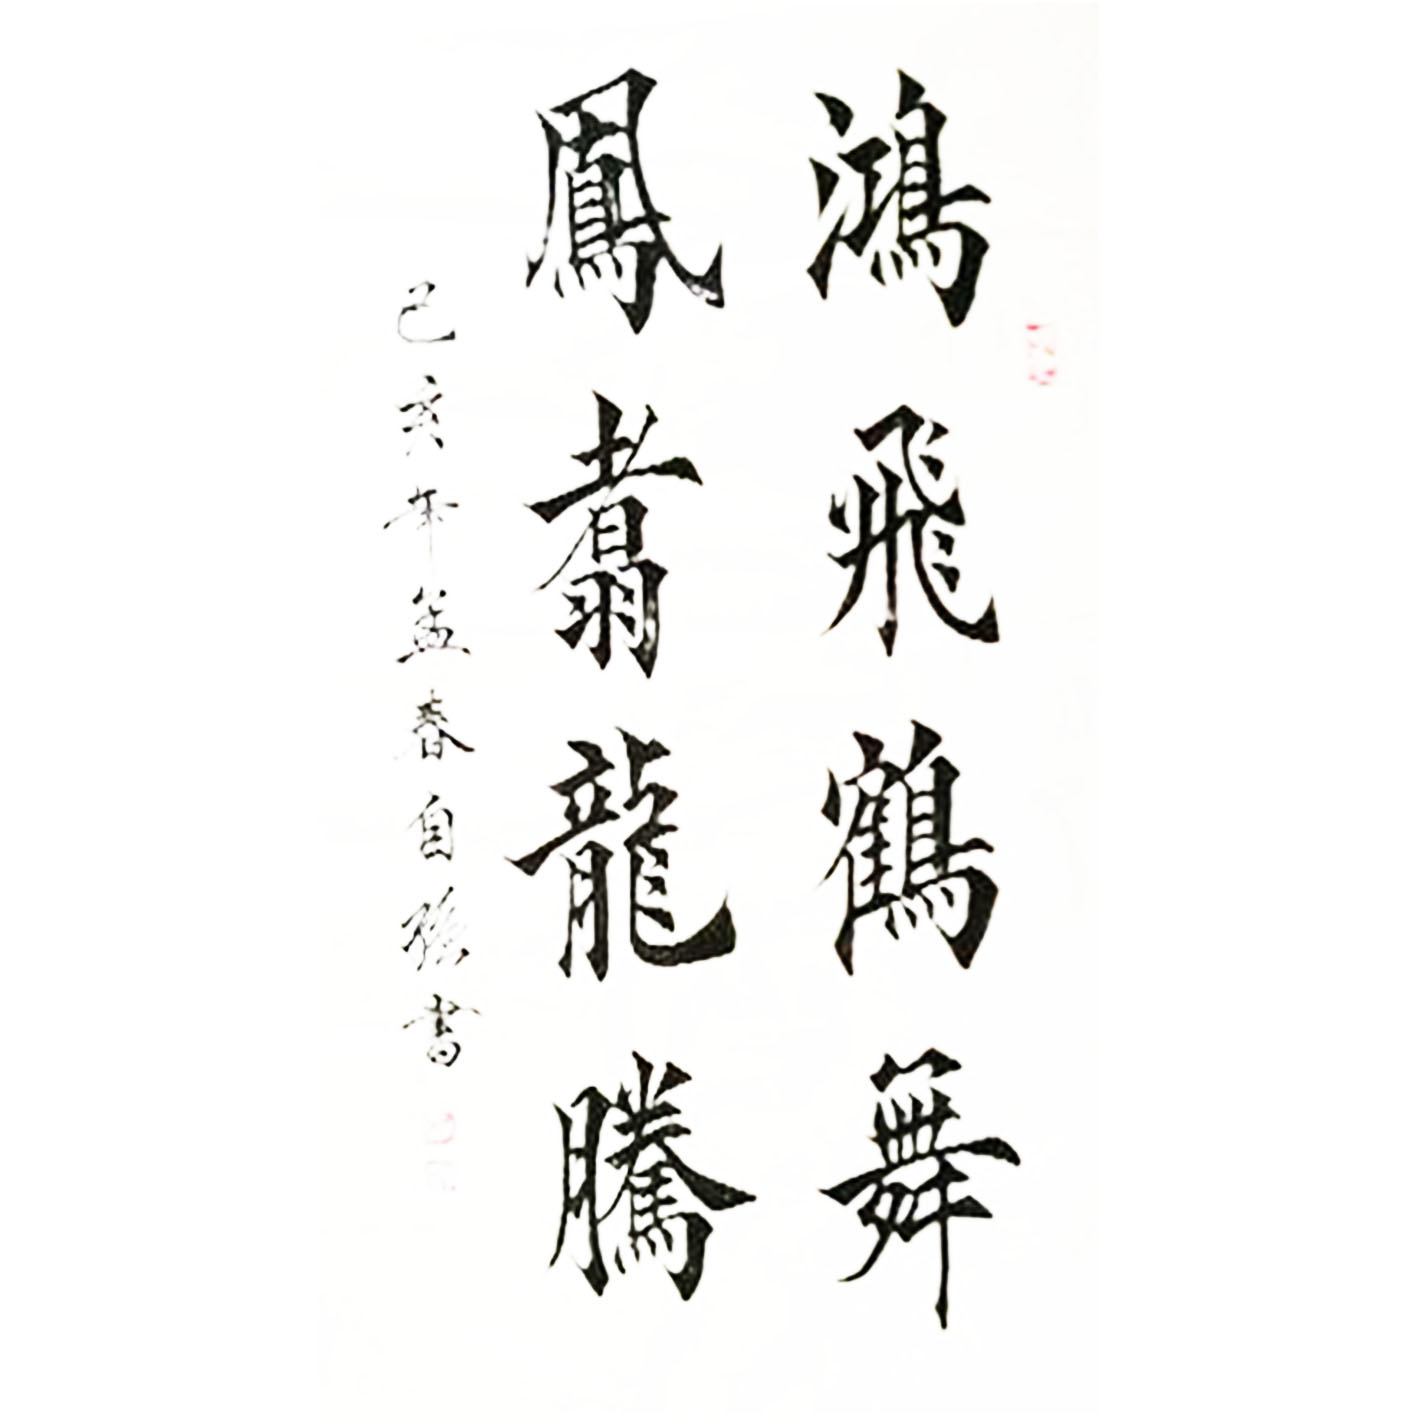 鴻飛鶴舞
鳳翥龍騰
己亥年孟春自強書